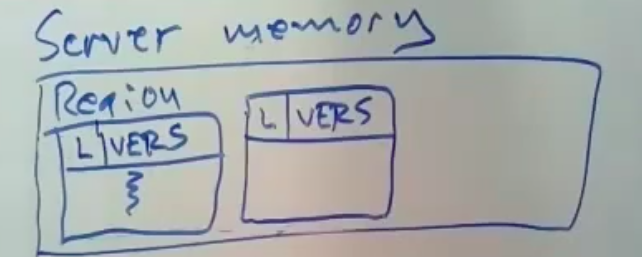 Server memory
Region
L VERS
L VERS